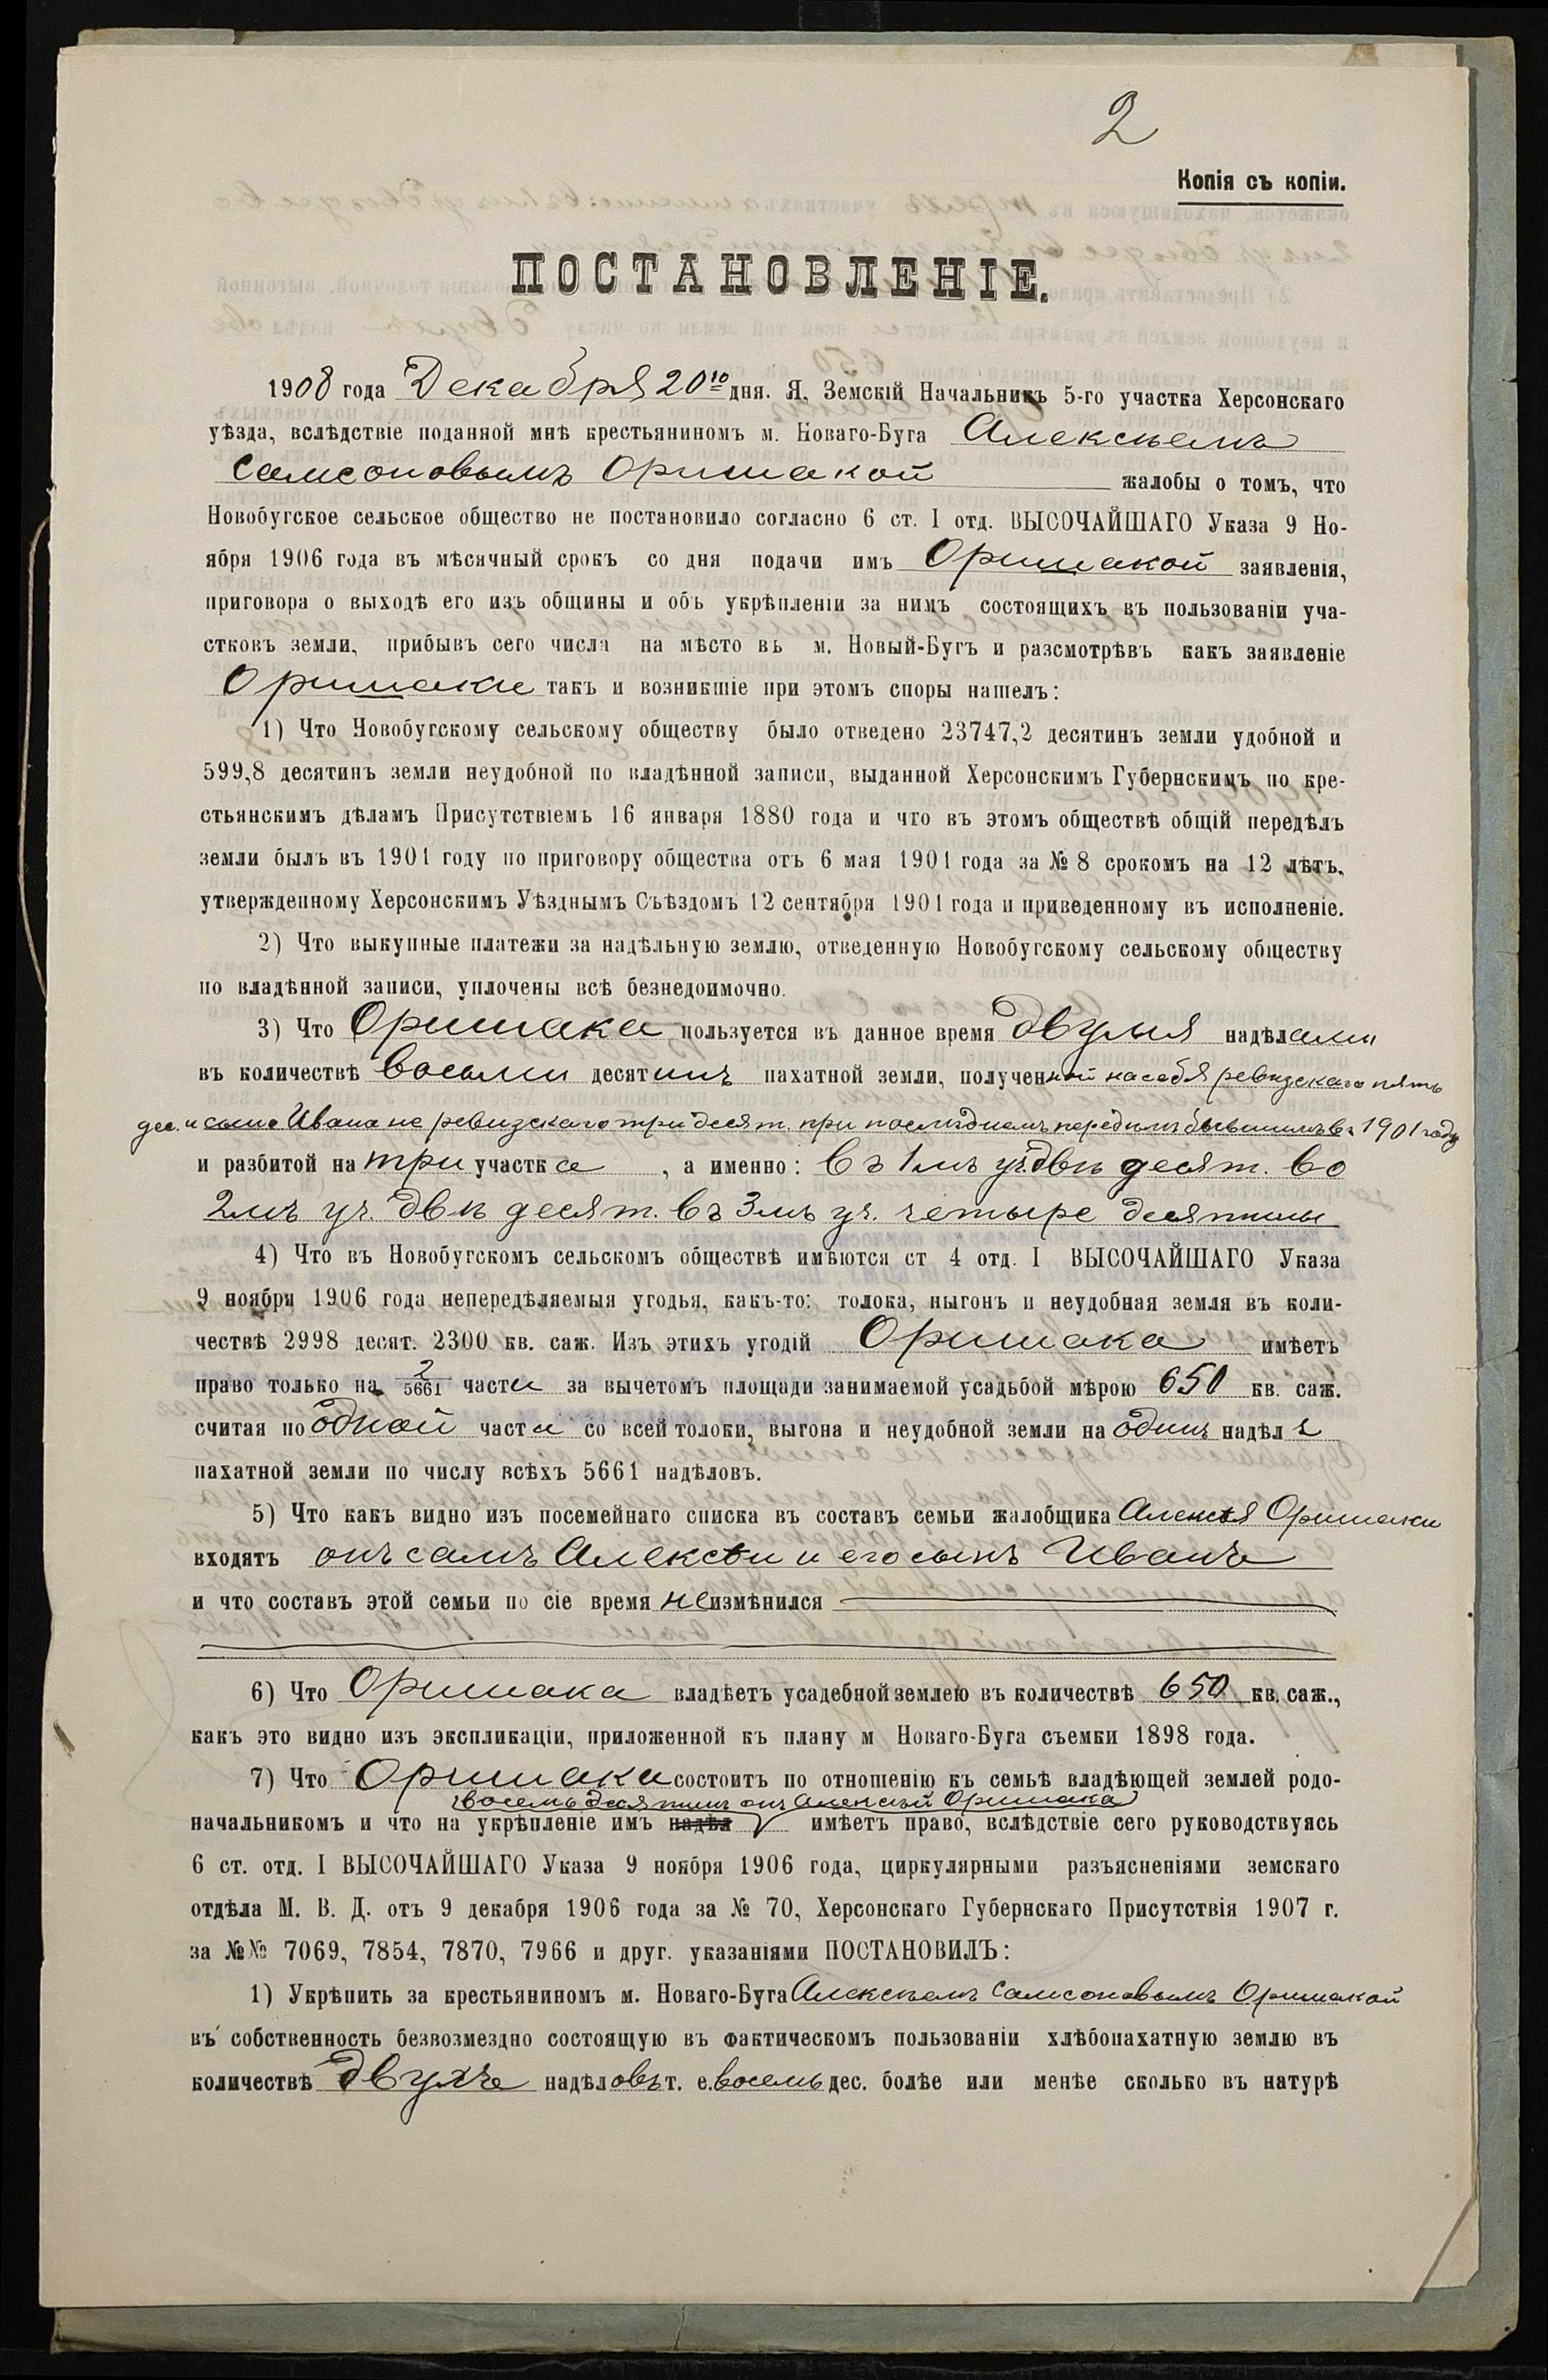 2
Копія съ копіи.
ПОСТАНОВЛЕНІЕ.
1908 года Декабря 20го дня. Я, Земскій Начальникъ 5-го участка Херсонскаго
уѣзда, вслѣдствіе поданной мнѣ крестьяниномъ м. Новаго-Буга Алексѣемъ
Самсоновымъ Оришакой жалобы о томъ, что
Новобугское сельское общество не постановило согласно 6 ст. I отд. ВЫСОЧАЙШАГО Указа 9 Но-
ября 1906 года въ мѣсячный срокъ со дня подачи имъ Оришакой заявленія,
приговора о выходѣ его изъ общины и объ укрѣпленіи за нимъ состоящихъ въ пользованіи уча-
стковъ земли, прибывъ сего числа на мѣсто въ м. Новый-Бугъ и разсмотрѣвъ какъ заявленіе
Оришаки такъ и возникшіе при этомъ споры нашелъ:
1) Что Новобугскому сельскому обществу было отведено 23747,2 десятинъ земли удобной и
599,8 десятинъ земли неудобной по владѣнной записи, выданной Херсонскимъ Губернскимъ по кре-
стьянскимъ дѣламъ Присутствіемъ 16 января 1880 года и что въ этомъ обществѣ общій передѣлъ
земли былъ въ 1901 году по приговору общества отъ 6 мая 1901 года за № 8 срокомъ на 12 лѣтъ,
утвержденному Херсонскимъ Уѣзднымъ Съѣздомъ 12 сентября 1901 года и приведенному въ исполненіе.
2) Что выкупные платежи за надѣльную землю, отведенную Новобугскому сельскому обществу
по владѣнной записи, уплочены всѣ безнедоимочно.
3) Что Оришака пользуется въ данное время двумя надѣлами
въ количествѣ восьми десятинъ пахатной земли, полученной на себя ревизскаго пять
дес. и сына Ивана не ревизскаго три десят. при послѣднемъ передѣлѣ бывшимъ въ 1901 году
и разбитой на три участка, а именно: въ 1мъ уч. двѣ десят. во
2мъ уч. двѣ десят. въ 3мъ уч. четыре десятины
4) Что въ Новобугскомъ сельскомъ обществѣ имѣются ст 4 отд. I ВЫСОЧАЙШАГО Указа
9 ноября 1906 года непередѣляемыя угодья, какъ-то: толока, выгонъ и неудобная земля въ коли-
чествѣ 2998 десят. 2300 кв. саж. Изъ этихъ угодій Оришака имѣетъ
право только на 2/5661 части за вычетомъ площади занимаемой усадьбой мѣрою 650 кв. саж.
считая по одной части со всей толоки, выгона и неудобной земли на одинъ надѣлъ
пахатной земли по числу всѣхъ 5661 надѣловъ.
5) Что какъ видно изъ посемейнаго списка въ составъ семьи жалобщика Алексѣя Оришаки
входятъ онъ самъ Алексѣй и его сынъ Иванъ
и что составъ этой семьи по сіе время не измѣнился
6) Что Оришака владѣетъ усадебной землею въ количествѣ 650 кв. саж.,
какъ это видно изъ экспликаціи, приложенной къ плану м Новаго-Буга съемки 1898 года.
7) Что Оришака состоитъ по отношенію къ семьѣ владѣющей землей родо-
восемь десятинъ онъ Алексѣй Оришака
начальникомъ и что на укрѣпленіе имъ надѣл имѣетъ право, вслѣдствіе сего руководствуясь
6 ст. отд. I ВЫСОЧАЙШАГО Указа 9 ноября 1906 года, циркулярными разъясненіями земскаго
отдѣла М. В. Д. отъ 9 декабря 1906 года за № 70, Херсонскаго Губернскаго Присутствія 1907 г.
за №№ 7069, 7854, 7870, 7966 и друг. указаніями ПОСТАНОВИЛЪ:
1) Укрѣпить за крестьяниномъ м. Новаго-Буга Алексѣемъ Самсоновымъ Оришакой
въ собственность безвозмездно состоящую въ фактическомъ пользованіи хлѣбопахатную землю въ
количествѣ двухъ надѣловъ т. е. восемь дес. болѣе или менѣе сколько въ натурѣ